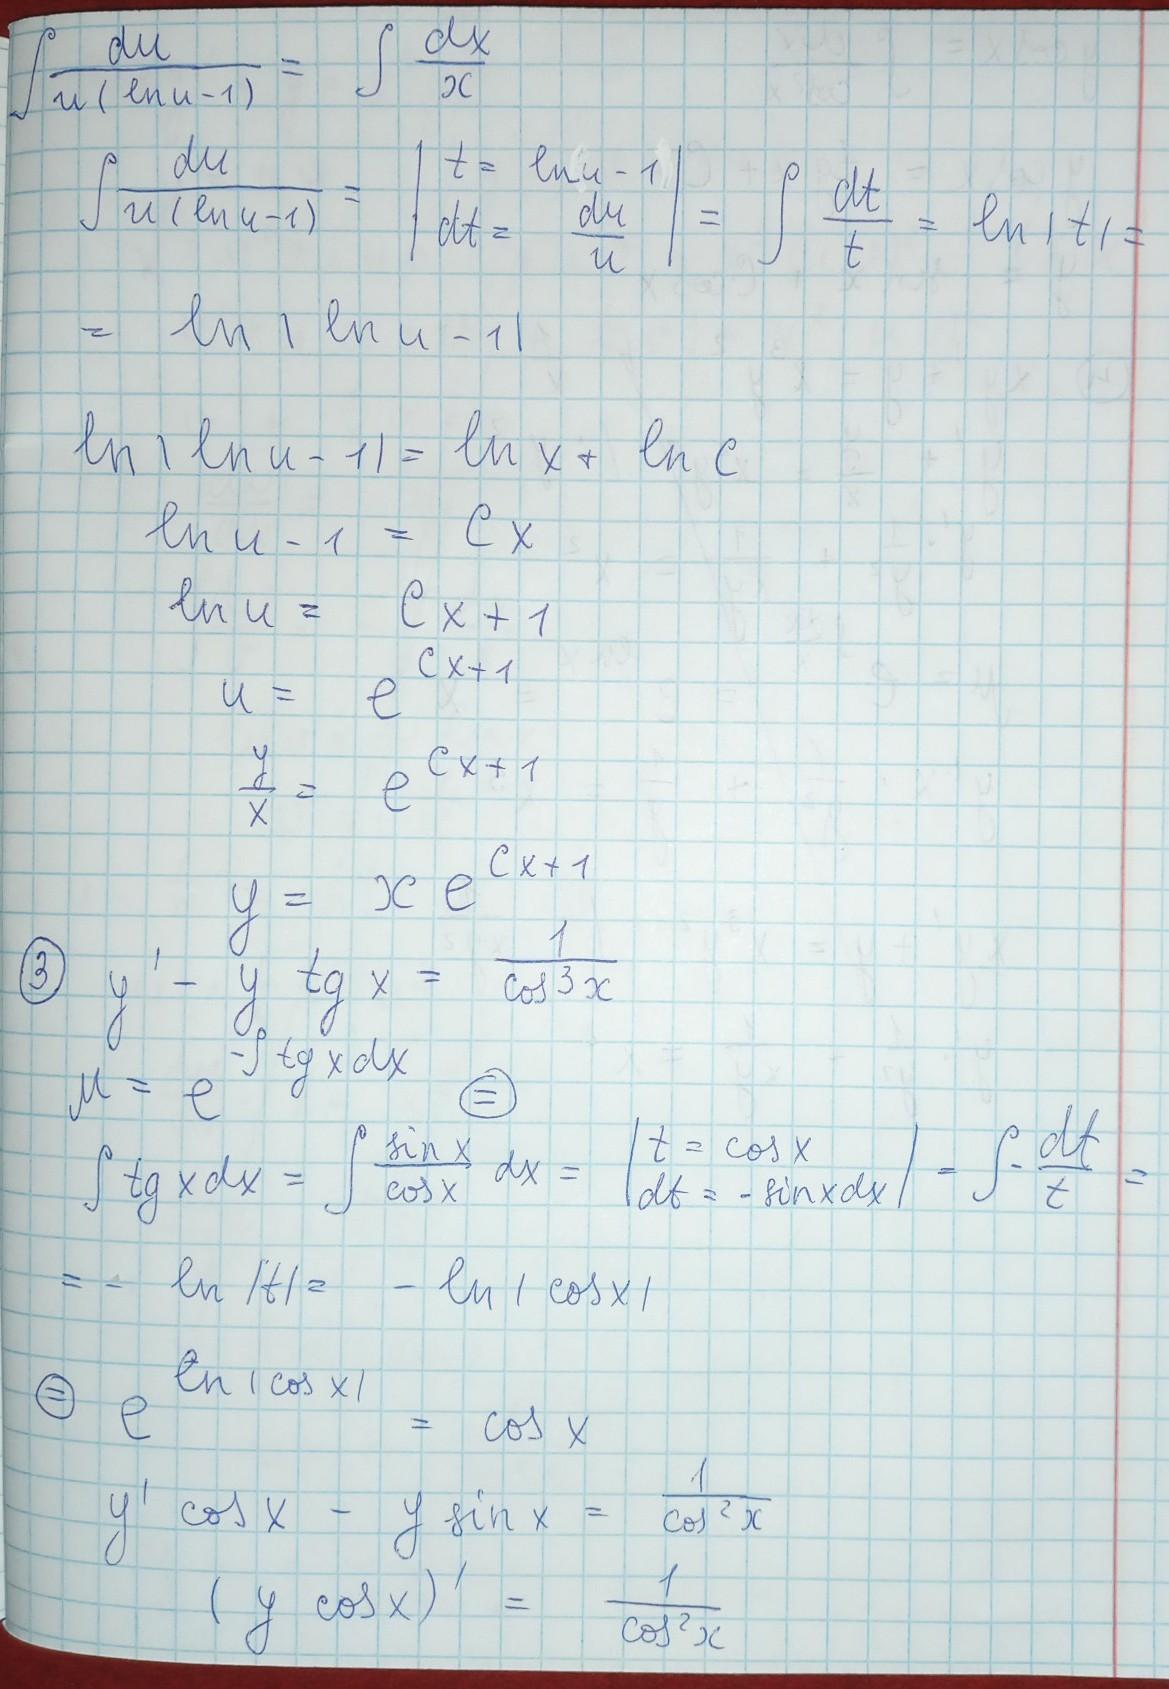 ∫ du / (u (ln u - 1)) = ∫ dx / x
∫ du / (u (ln u - 1)) = | t = ln u - 1, dt = du / u | = ∫ dt / t = ln |t| =
= ln | ln u - 1 |
ln | ln u - 1 | = ln x + ln C
ln u - 1 = Cx
ln u = Cx + 1
u = e^(Cx+1)
y / x = e^(Cx+1)
y = x e^(Cx+1)
③ y' - y tg x = 1 / cos³ x
μ = e^(-∫ tg x dx) ⊜
∫ tg x dx = ∫ sin x / cos x dx = | t = cos x, dt = - sin x dx | = ∫ - dt / t =
= - ln |t| = - ln | cos x |
⊜ e^(ln | cos x |) = cos x
y' cos x - y sin x = 1 / cos² x
( y cos x )' = 1 / cos² x